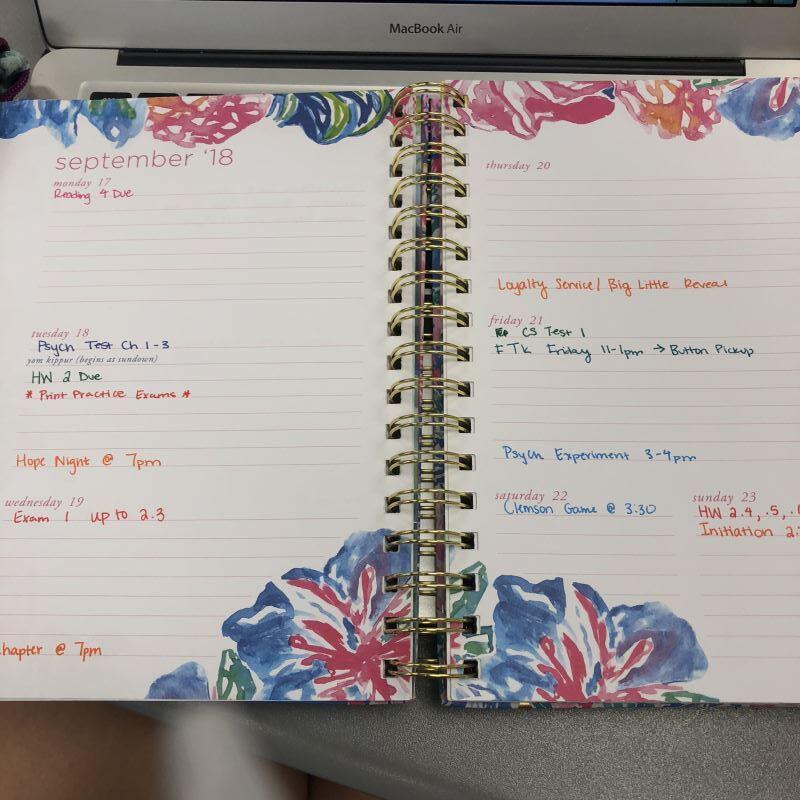 MacBook Air
september '18
monday 17
Reading 4 Due
tuesday 18
Psych Test Ch 1-3
yom kippur (begins at sundown)
HW 2 Due
* Print Practice Exams *
Hope Night @ 7pm
wednesday 19
Exam 1 up to 2.3
hapter @ 7pm
thursday 20
Loyalty Service / Big Little Reveal
friday 21
CS Test 1
FTK Friday 11-1pm → Button Pickup
Psych Experiment 3-4pm
saturday 22
Clemson Game @ 3:30
sunday 23
HW 2.4, .5,
Initiation 2: